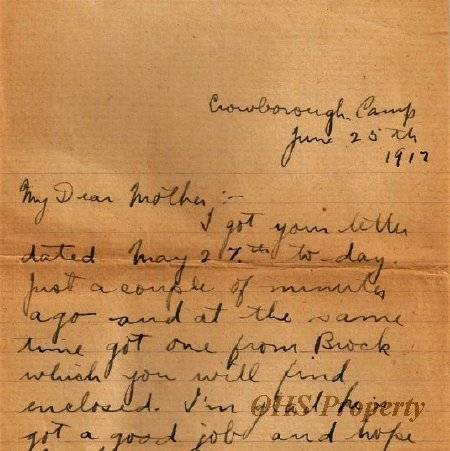 Crowborough Camp
June 25th
1917
My Dear Mother :-
I got your letter
dated May 27th to-day.
Just a couple of minutes
ago and at the same
time got one from Brock
which you will find
enclosed. I'm glad he's
OHS Property
got a good job and hope